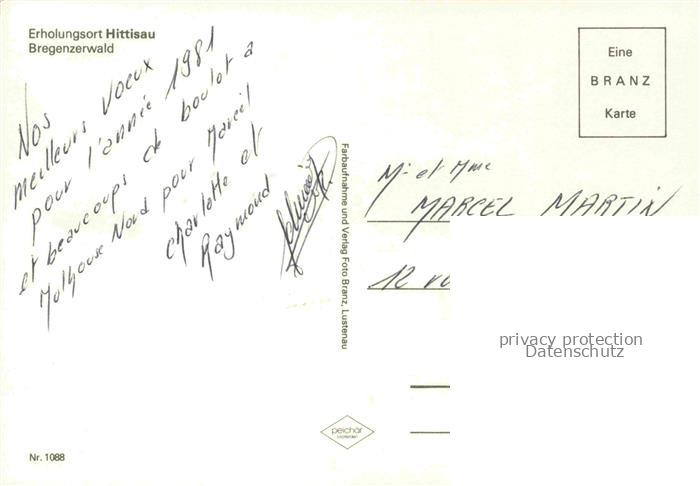 Erholungsort Hittisau
Bregenzerwald
Nos
meilleurs voeux
pour l'année 1981
et beaucoups de boulot a
Molhouse Nord pour Marcel
charlotte et
Raymond
Farbaufnahme und Verlag Foto Branz, Lustenau
Eine
BRANZ
Karte
Mr et Mme
MARCEL MARTIN
12 ru
privacy protection
Datenschutz
peichär
Nr. 1088